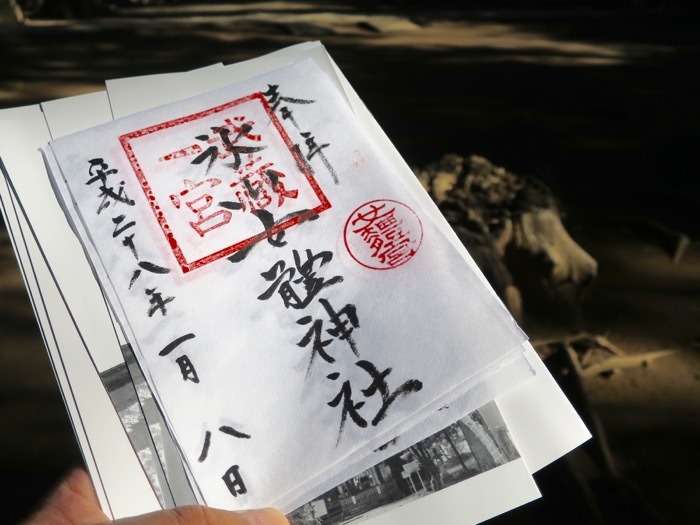 奉拝
武蔵
一宮
氷川女體神社
平成二十八年一月八日